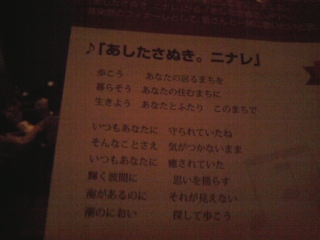 ♪『あしたさぬき。ニナレ』
歩こう　あなたの居るまちを
暮らそう　あなたの住むまちに
生きよう　あなたとふたり　このまちで
いつもあなたに　守られていたね
そんなことさえ　気がつかないまま
いつもあなたに　癒されていた
輝く波間に　思いを揺らす
海があるのに　それが見えない
潮のに匂い　探して歩こう